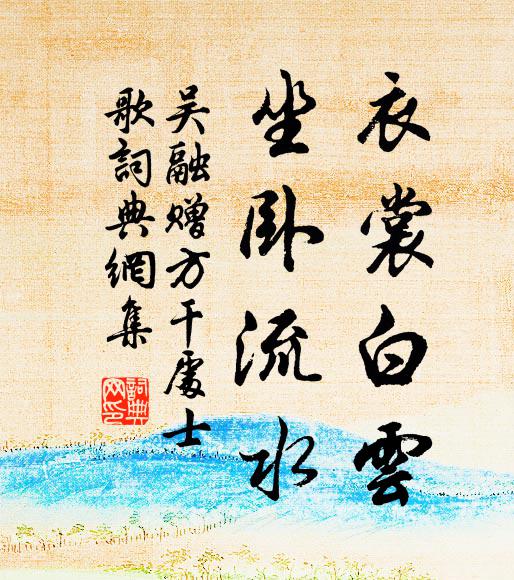 衣裳白雲
坐臥流水
吴融贈方干處士
歌詞典網集
詞典網印